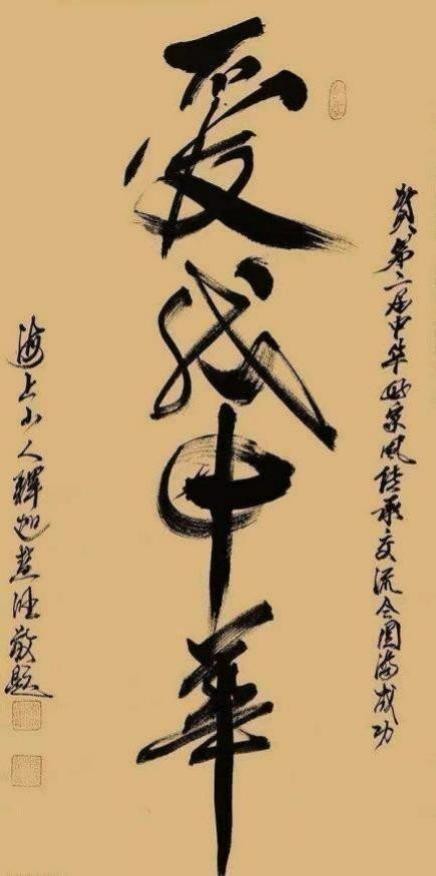 贺第二届中华好家风传承交流会圆满成功
爱我中华
海上山人释迦慧法敬题